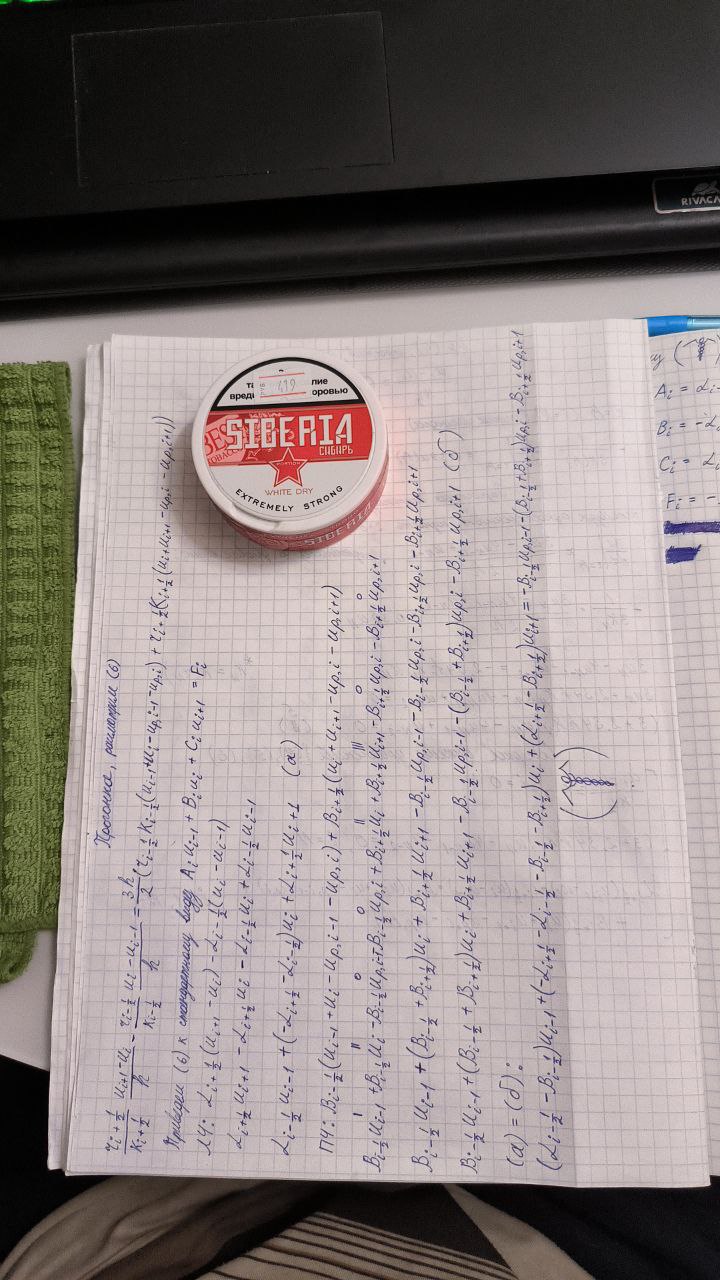 RIVACA
та
ЛИЕ
вред
оровью
РУБ
419
SIBERIA
СИБИРЬ
PORTION
WHITE DRY
EXTREMELY STRONG
SIBERIA
Прогонка, рассмотрим (6)
r_{i+1/2}/K_{i+1/2} (u_{i+1}-u_i)/h - r_{i-1/2}/K_{i-1/2} (u_i-u_{i-1})/h = 3h/2 (r_{i-1/2} K_{i-1/2}(u_{i-1}+u_i-u_{p,i-1}-u_{p,i}) + r_{i+1/2} K_{i+1/2}(u_i+u_{i+1}-u_{p,i}-u_{p,i+1}))
Приведем (6) к стандартному виду A_i u_{i-1} + B_i u_i + C_i u_{i+1} = F_i
ЛЧ: α_{i+1/2}(u_{i+1}-u_i) - α_{i-1/2}(u_i-u_{i-1})
α_{i+1/2} u_{i+1} - α_{i+1/2} u_i - α_{i-1/2} u_i + α_{i-1/2} u_{i-1}
α_{i-1/2} u_{i-1} + (-α_{i+1/2} - α_{i-1/2}) u_i + α_{i+1/2} u_{i+1} (а)
ПЧ: B_{i-1/2}(u_{i-1}+u_i-u_{p,i-1}-u_{p,i}) + B_{i+1/2}(u_i+u_{i+1}-u_{p,i}-u_{p,i+1})
B_{i-1/2} u_{i-1} + B_{i-1/2} u_i - B_{i-1/2} u_{p,i-1} - B_{i-1/2} u_{p,i} + B_{i+1/2} u_i + B_{i+1/2} u_{i+1} - B_{i+1/2} u_{p,i} - B_{i+1/2} u_{p,i+1}
B_{i-1/2} u_{i-1} + (B_{i-1/2} + B_{i+1/2}) u_i + B_{i+1/2} u_{i+1} - B_{i-1/2} u_{p,i-1} - B_{i-1/2} u_{p,i} - B_{i+1/2} u_{p,i} - B_{i+1/2} u_{p,i+1}
B_{i-1/2} u_{i-1} + (B_{i-1/2} + B_{i+1/2}) u_i + B_{i+1/2} u_{i+1} - B_{i-1/2} u_{p,i-1} - (B_{i-1/2} + B_{i+1/2}) u_{p,i} - B_{i+1/2} u_{p,i+1} (б)
(а) = (б):
(α_{i-1/2} - B_{i-1/2}) u_{i-1} + (-α_{i+1/2} - α_{i-1/2} - B_{i-1/2} - B_{i+1/2}) u_i + (α_{i+1/2} - B_{i+1/2}) u_{i+1} = -B_{i-1/2} u_{p,i-1} - (B_{i-1/2} + B_{i+1/2}) u_{p,i} - B_{i+1/2} u_{p,i+1}
A_i = α_{i-
B_i = -α
C_i = α
F_i = -